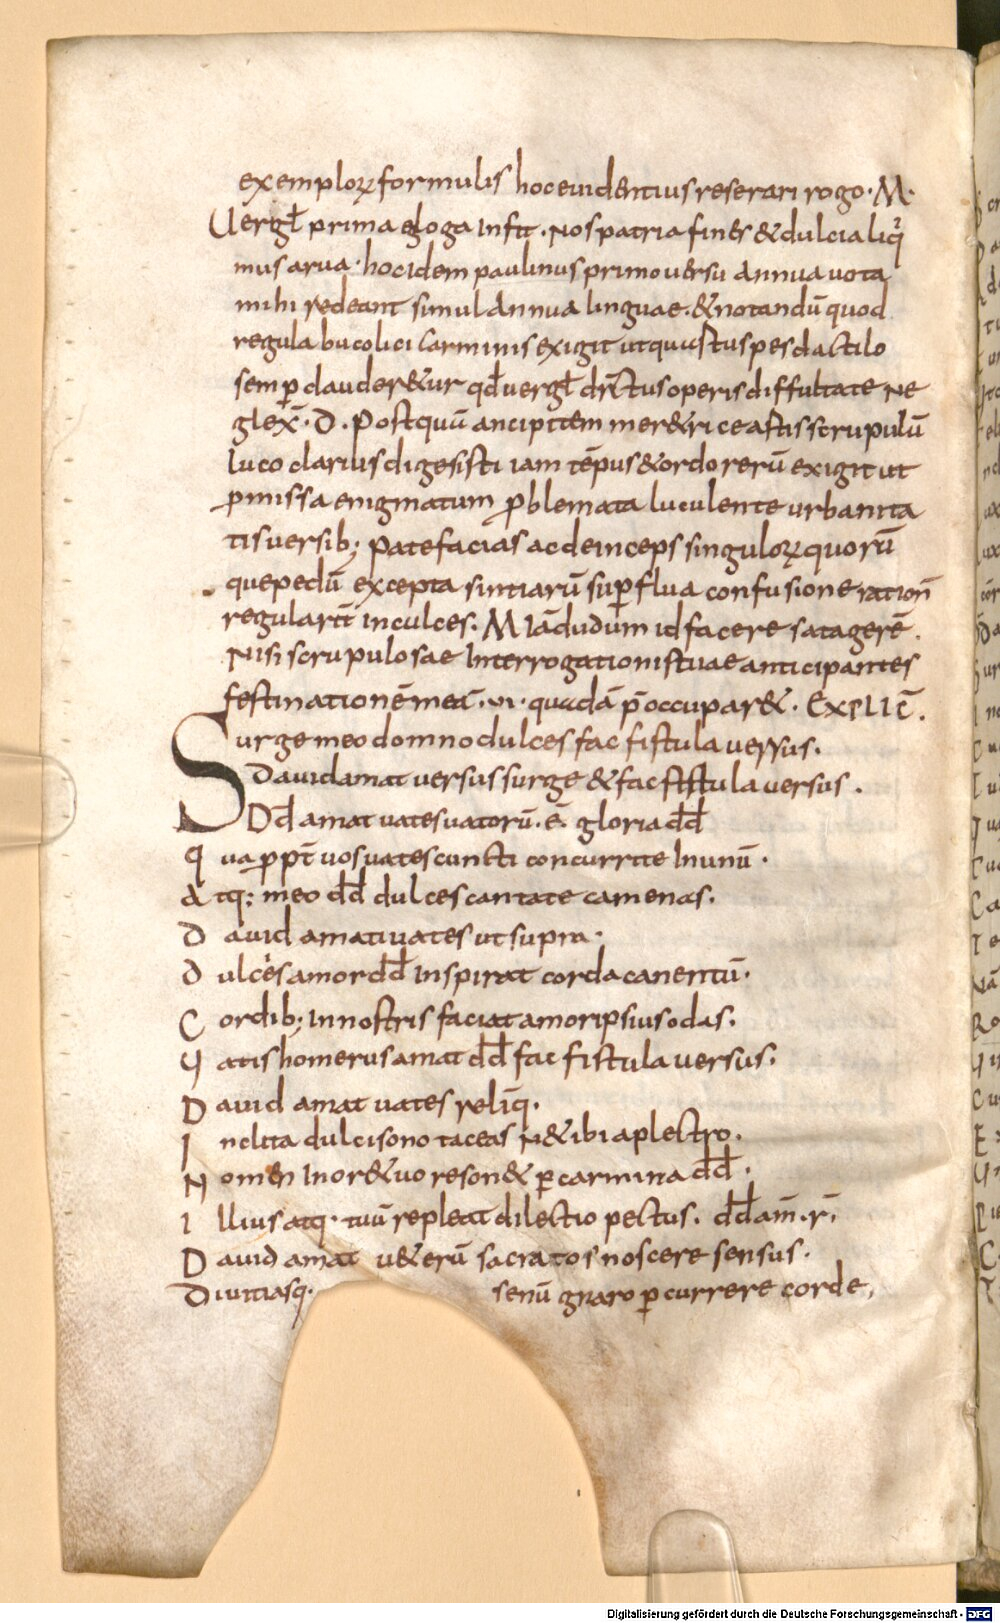 exemploꝝ formulis hoc euidentius reserari rogo · M ·
Uergł prima egloga Infit · Nos patria fines & dulcia liq̉
mus arua · hoc idem paulinus primo uersu annua uota
mihi redeant simul annua linguae · & notandū quod
regula bucolici carminis exigit ut quiſtus pes dactilo
semp̱ clauderetur qđ uergł
operis diffultate Ne
glex̄ · D · Postquū ancipitem meretrice astis scrupulū
luco clarius digesisti iam tēpus & ordo rerū exigit ut
p̄missa enigmatum ꝓblemata luculente urbanita
tis uersib; patefacias ac deinceps singuloꝝ quorū
que pedū excepta sintiarū sup̱flua confusione ration̄
regularit̄ inculces · M Iādudum id facere satagerē ·
Nisi scrupulosae Interrogationis tuae anticipantes
festinationē meā · ui · quadā p̄occuparet · EXPLIC̄ ·
Surge meo domno dulces fac fistula uersus ·
Dauid amat uersus surge & fac fistula uersus ·
Dđ amat uates uatorū · ē · gloria dđ
Qua ꝓpt̄ uos uates cuncti concurrite Inunū ·
Atq; meo dđ dulces cantate camenas ·
Dauid amat uates ut supra ·
Dulces amor dđ Inspirat corda canentū ·
Cordib; In nostris faciat amor ipsius odas ·
Uatis homerus amat dđ fac fistula uersus ·
Dauid amat uates reliq̄ ·
Inclita dulcisono taceas N& ibia plectro ·
Nomen In or& uo reson& p̱ carmina dđ ·
Illius atq · tuū repleat dilectio pectus · dđ am̄ · r̄ ·
Dauid amat u&erū sacratos noscere sensus ·
Diuitiasq · senū gnaro p̱currere corde ,
Digitalisierung gefördert durch die Deutsche Forschungsgemeinschaft - DFG